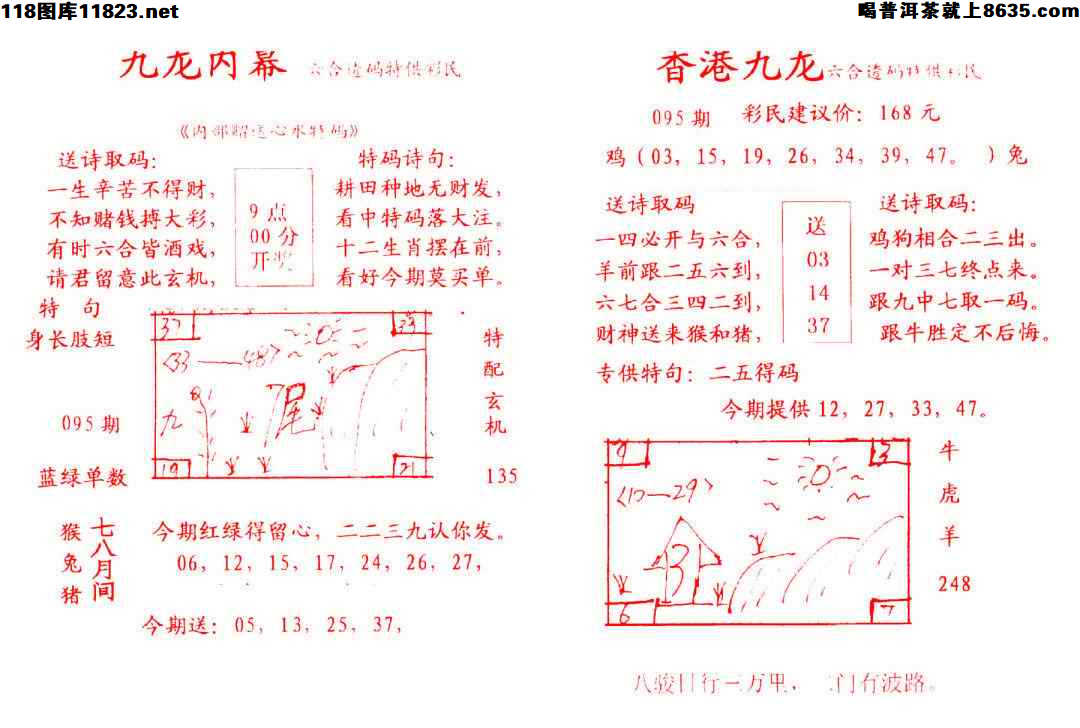 118图库11823.net
喝普洱茶就上8635.com
九龙内幕 六合透码特供彩民
《内部赠送心水特码》
送诗取码：
一生辛苦不得财，
不知赌钱搏大彩，
有时六合皆酒戏，
请君留意此玄机，
9点
00分
开奖
特码诗句：
耕田种地无财发，
看中特码落大注。
十二生肖摆在前，
看好今期莫买单。
特 句
身长肢短
095期
蓝绿单数
37
33
<33——48>
九
尾
19
21
特
配
玄
机
135
猴
兔
猪
七八月间
今期红绿得留心，二二三九认你发。
06，12，15，17，24，26，27，
今期送：05，13，25，37，
香港九龙 六合透码特供彩民
095期 彩民建议价：168元
鸡（03，15，19，26，34，39，47。）兔
送诗取码
一四必开与六合，
羊前跟二五六到，
六七合三四二到，
财神送来猴和猪，
送
03
14
37
送诗取码：
鸡狗相合二三出。
一对三七终点来。
跟九中七取一码。
跟牛胜定不后悔。
专供特句：二五得码
今期提供12，27，33，47。
9
3
<10—29>
31
6
7
牛
虎
羊
248
八骏日行三万里，门有波路。